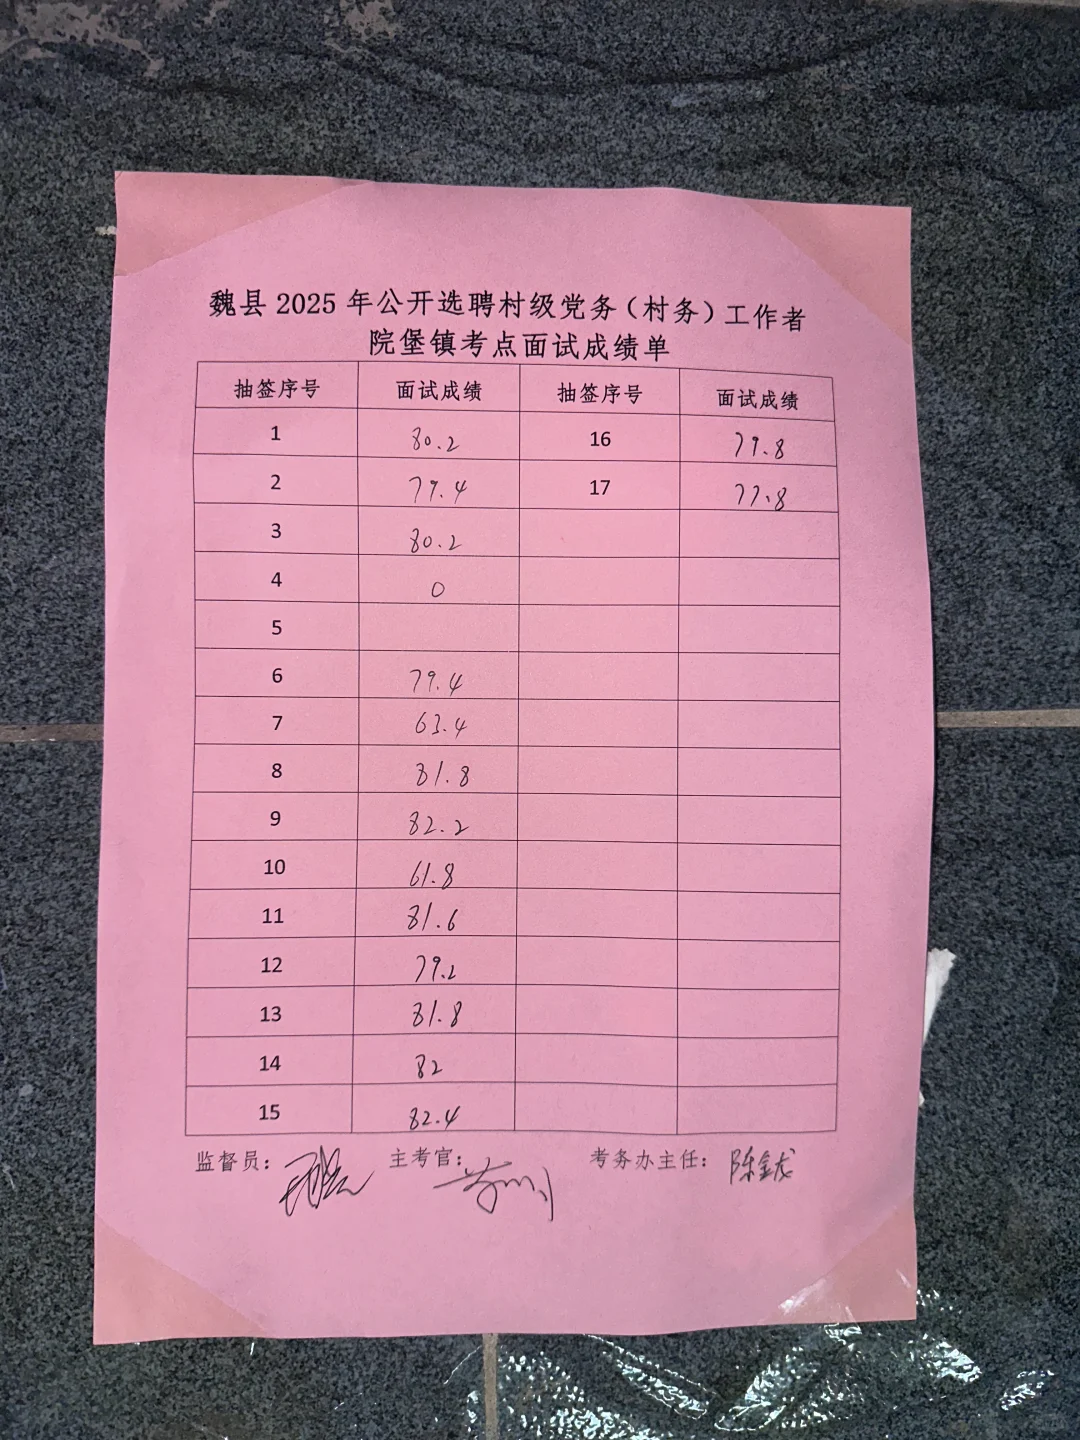 魏县 2025 年公开选聘村级党务（村务）工作者
院堡镇考点面试成绩单
抽签序号 面试成绩 抽签序号 面试成绩
1 80.2 16 79.8
2 79.4 17 77.8
3 80.2
4 0
5
6 79.4
7 63.4
8 81.8
9 82.2
10 61.8
11 81.6
12 79.2
13 81.8
14 82
15 82.4
监督员： 主考官： 考务办主任：陈金龙